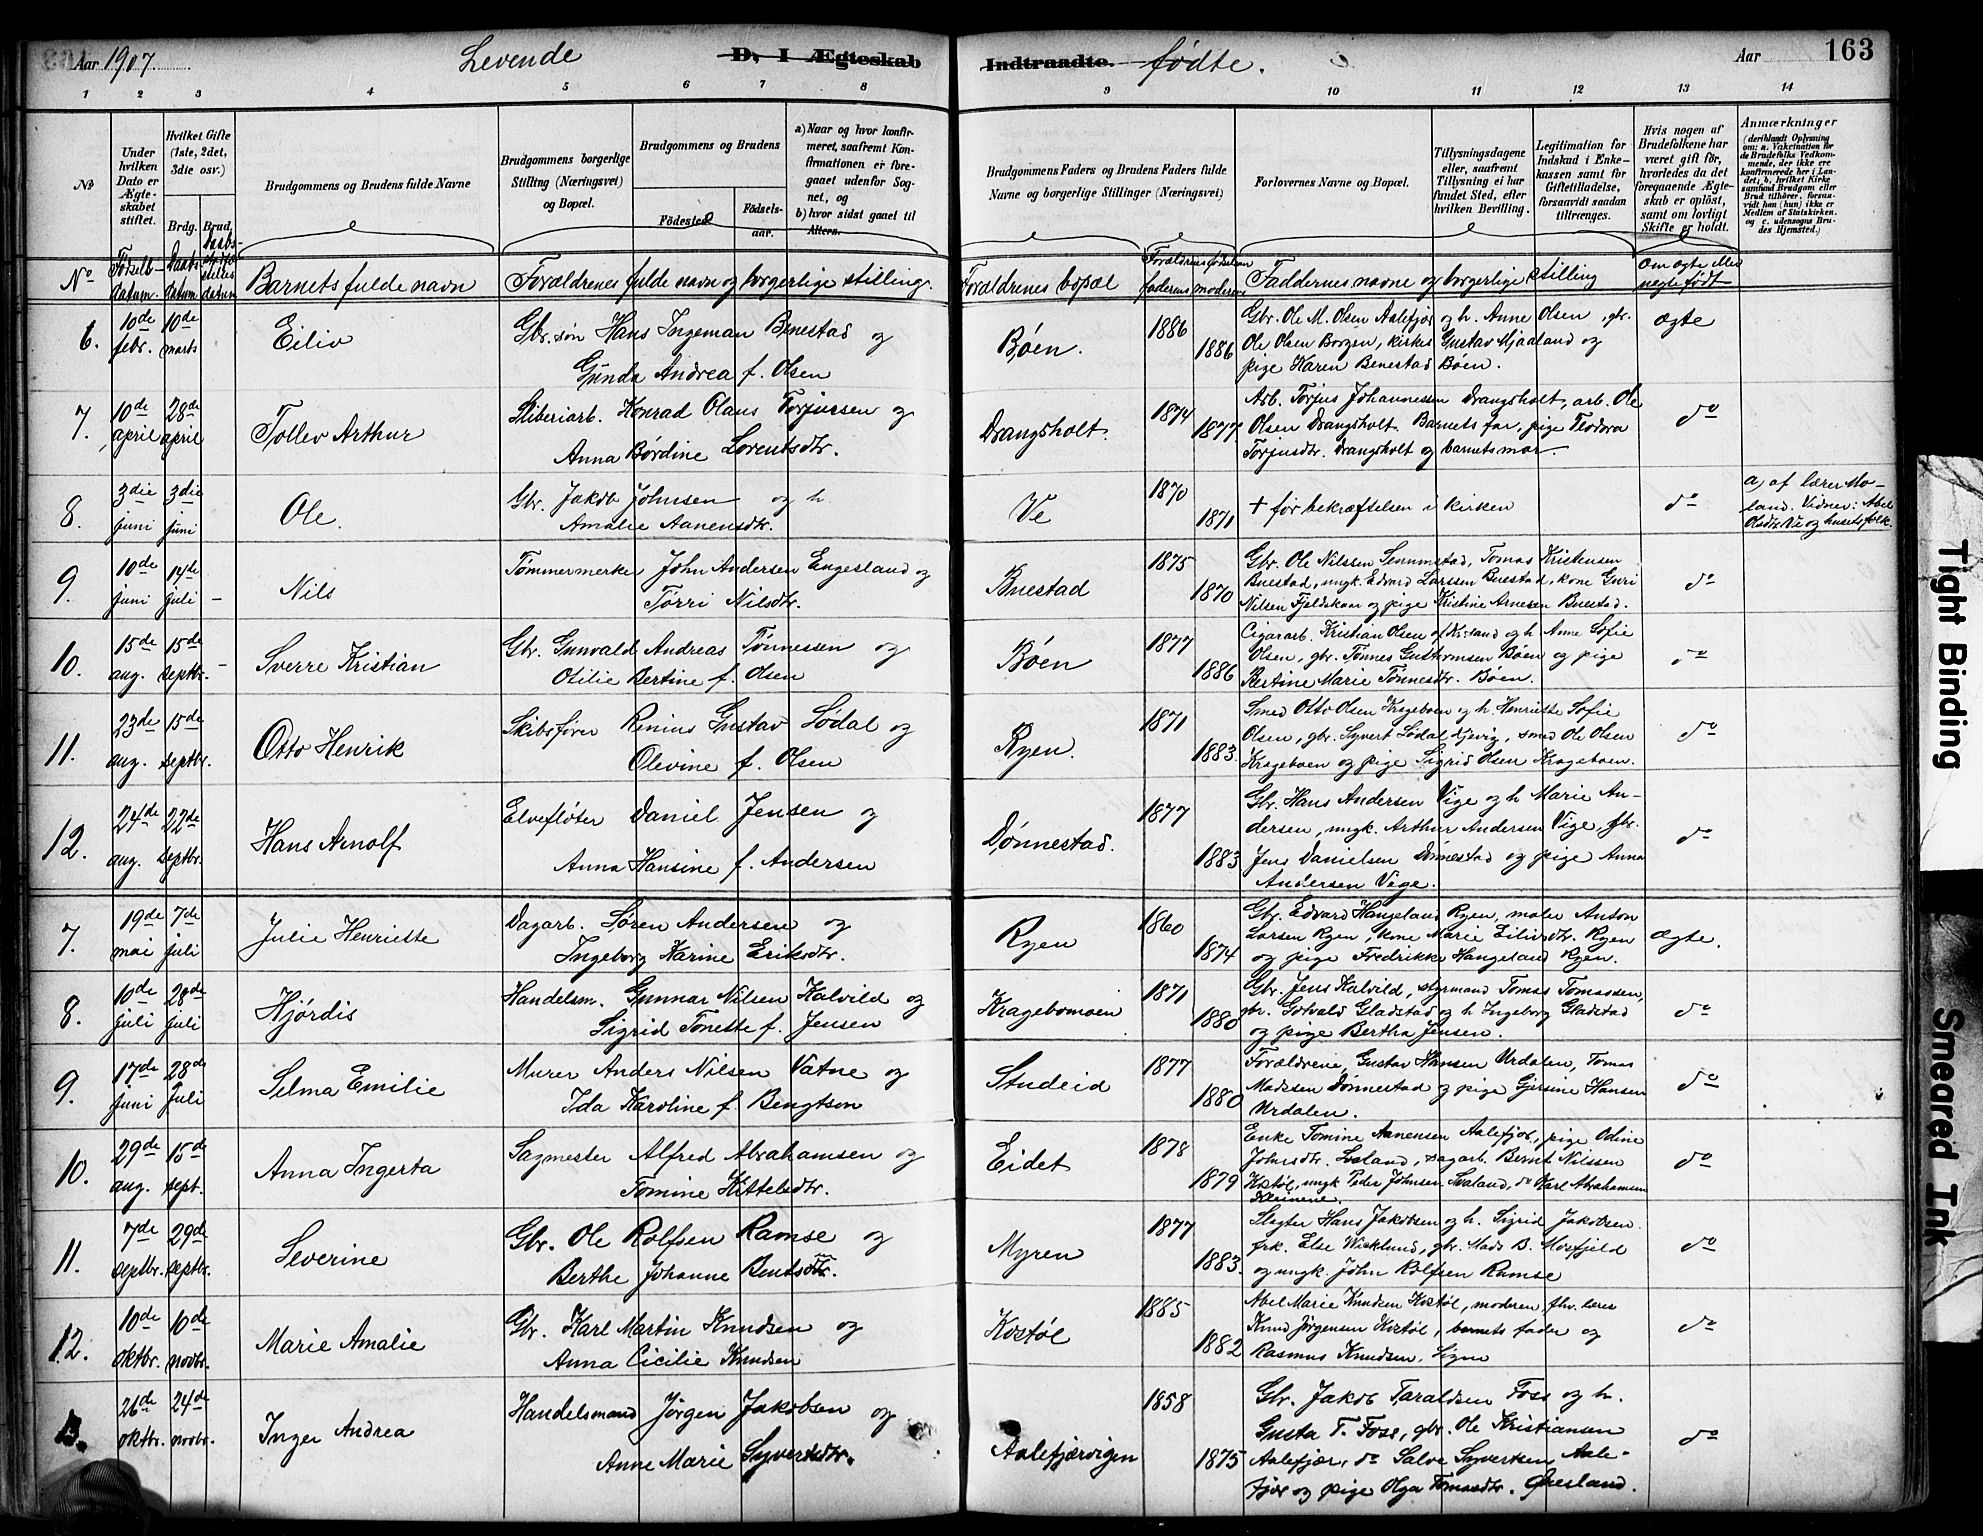 Aar 1907 Levende D, I Ægteskab Indtraadte. fødte. Aar 163
1 2 3 4 5 6 7 8 9 10 11 12 13 14
No Under hvilken Dato er Ægteskabet stiftet. Hvilket Gifte (1ste, 2det, 3die osv.) Brdg. Brud. Brudgommens og Brudens fulde Navne Brudgommens borgerlige Stilling (Næringsvei) og Bopæl. Brudgommens og Brudens Fødested Fødselsaar. a) Naar og hvor konfirmeret, saafremt Konfirmationen er foregaaet udenfor Sognet, og b) hvor sidst gaaet til Alters.
Brudgommens Faders og Brudens Faders fulde Navne og borgerlige Stillinger (Næringsvei) Forlovernes Navne og Bopæl. Tillysningsdagene eller, saafremt Tillysning ei har fundet Sted, efter hvilken Bevilling. Legitimation for Indskud i Enkekassen samt for Giftetilladelse, forsaavidt saadan tiltrænges. Hvis nogen af Brudefolkene har været gift før, hvorledes da det foregaaende Ægteskab er opløst, samt om lovligt Skifte er holdt. Anmærkninger (deriblandt Oplysning om: a. Vakcination for de Brudefolks Vedkommende, der ikke ere konfirmerede her i Landet; b. hvilket Kirkesamfund Brudgom eller Brud tilhører, forsaavidt han (hun) ikke er Medlem af Statskirken, og c. udensogns Brudes Hjemsted.)
No Fødselsdatum. Daabsdatum Barnets fulde navn Forældrenes fulde navn og borgerlige stilling. Forældrenes bopæl faderens moderens Faddernes navne og borgerlige stilling om ægte eller uegte født
6. 10de febr. 10de marts Eiliv Gbr. søn Hans Ingeman Benestad og Bøen. 1886 Gbr. Ole M. Olsen Aalefjær og h. Anne Olsen, gbr. ægte
Gunda Andrea f. Olsen 1886 Ole Olsen Borgen, kirkes. Gustav Mjaaland og
pige Karen Benestad Bøen.
7. 10de april 28de april Tollev Arthur Sliberiarb. Konrad Olaus Torjussen og Drangsholt. 1874 Arb. Torjus Johannesen Drangsholt, arb. Ole do
Anna Børdine Lorentsdtr. 1877 Olsen Drangsholt. Barnets far, pige Teodora
Torjusdtr. Drangsholt og barnets mor.
8. 3die juni 3die juni Ole. Gbr. Jakob Johnsen og h. Ve 1870 + før bekræftelsen i kirken do a, af lærer Mo-
Amalie Aanensdtr. 1871 land. Vidner: Abel
Olsdtr. Ve og husets folk.
9. 10de juni 14de juli - Nils Tømmermerker John Andersen Engesland og Buestad 1875 Gbr. Ole Nilssen Senumstad, Tomas Kristensen do
Torri Nilsdtr. 1870 Buestad, ungk. Edvard Larssen Buestad, kone Guri
Nilsen Fjeldskaar og pige Kristine Arnesen Buestad.
10. 15de aug. 15de septbr. - Sverre Kristian Gbr. Gunvald Andreas Tønnessen og Bøen 1877 Cigararb. Kristian Olsen af Kr.sand og h. Anne Sofie do
Otilie Bertine f. Olsen 1886 Olsen, gbr. Tønnes Guttormsen Bøen og pige
Kertine Marie Tønnesdtr. Bøen.
11. 23de aug. 15de septbr. Otto Henrik Skibsfører Renius Gustav Sødal og Ryen. 1871 Smed Otto Olsen Krageboen og h. Henriette Sofie do
Olevine f. Olsen 1883. Olsen, gbr. Syvert Sødal Njevig, smed Ole Olsen
Krageboen og pige Sigrid Olsen Krageboen.
12. 24de aug. 22de septbr. Hans Arnolf Elvefløter Daniel Jensen og Dønnestad. 1877 Gbr. Hans Andersen Vige og h. Marie An-
Anna Hansine f. Andersen 1883 dersen, ungk. Arthur Andersen Vige, gbr. do
Jens Danielsen Dønnestad og pige Anna
Andersen Vige.
7. 19de mai 7de juli Julie Henriette Dagarb. Søren Andersen og Ryen 1860 Gbr. Edvard Haugeland Ryen, maler Anton
Ingeborg Karine Eriksdtr. 1874 Larsen Ryen, kone Marie Eilivsdtr. Ryen ægte.
og pige Fredrikke Haugeland Ryen.
8. 10de juli 28de juli Hjørdis Handelsm. Gunnar Nilsen Kalvild og Kragebomoen 1871 Gbr. Jens Kalvild, styrmand Tomas Tomassen, do
Sigrid Tonette f. Jensen 1880 gbr. Gotvald Gladstad og h. Ingeborg Gladstad
og pige Bertha Jensen.
9. 17de juni 28de Juli Selma Emilie Murer Anders Nilsen Vatne og Studeid 1877 Forældrene, Gustav Hansen Urdalen, Tomas do
Ida Karoline f. Bengtson 1880 Madssen Dønnestad og pige Gjersine Hansen
Urdalen.
10. 29de aug. 15de sept. Anna Ingerta Sagmester Alfred Abrahamsen og Eidet 1878 Enke Tomine Aanensen Aalefjær, pige Odine do
Tomine Kittelsdtr. 1879 Johnsdtr. Svaland, sagarb. Bernt Nilssen
Kostøl, ungk. Peder Johnsen Svaland, do Karl Abrahamsen
Kleivene.
11. 7de septbr. 29de septbr. Severine Gbr. Ole Rolfsen Ramse og Myren 1877 Slagter Hans Jakobsen og h. Sigrid Jakobsen. do
Berthe Johanne Bentsdtr. 1883. frk. Else Wicklund, gbr. Mads B. Mosfjeld
og ungk. John Rolfsen Ramse
12. 10de oktbr. 10de novbr. Marie Amalie Gbr. Karl Martin Knudsen og Kostøl 1885 Abel Marie Knudsen Kostøl, moderen, fhv. lærer do
Anna Cicilie Knudsen 1882 Knud Jørgensen Kostøl, barnets fader og
Rasmus Knudsen, Signe
13. 26de oktbr. 24de novbr. Inger Andrea Handelsmand Jørgen Jakobsen og Aalefjærvigen 1858 Gbr. Jakob Taraldsen Foss og h. do
Anne Marie Syvertsdtr. 1875 Gusta T. Foss, gbr. Ole Kristiansen
Aalefjær, do Salve Syvertsen Aale-
fjær og pige Olga Tomasdtr. Øvesland.
Tight Binding
Smeared Ink